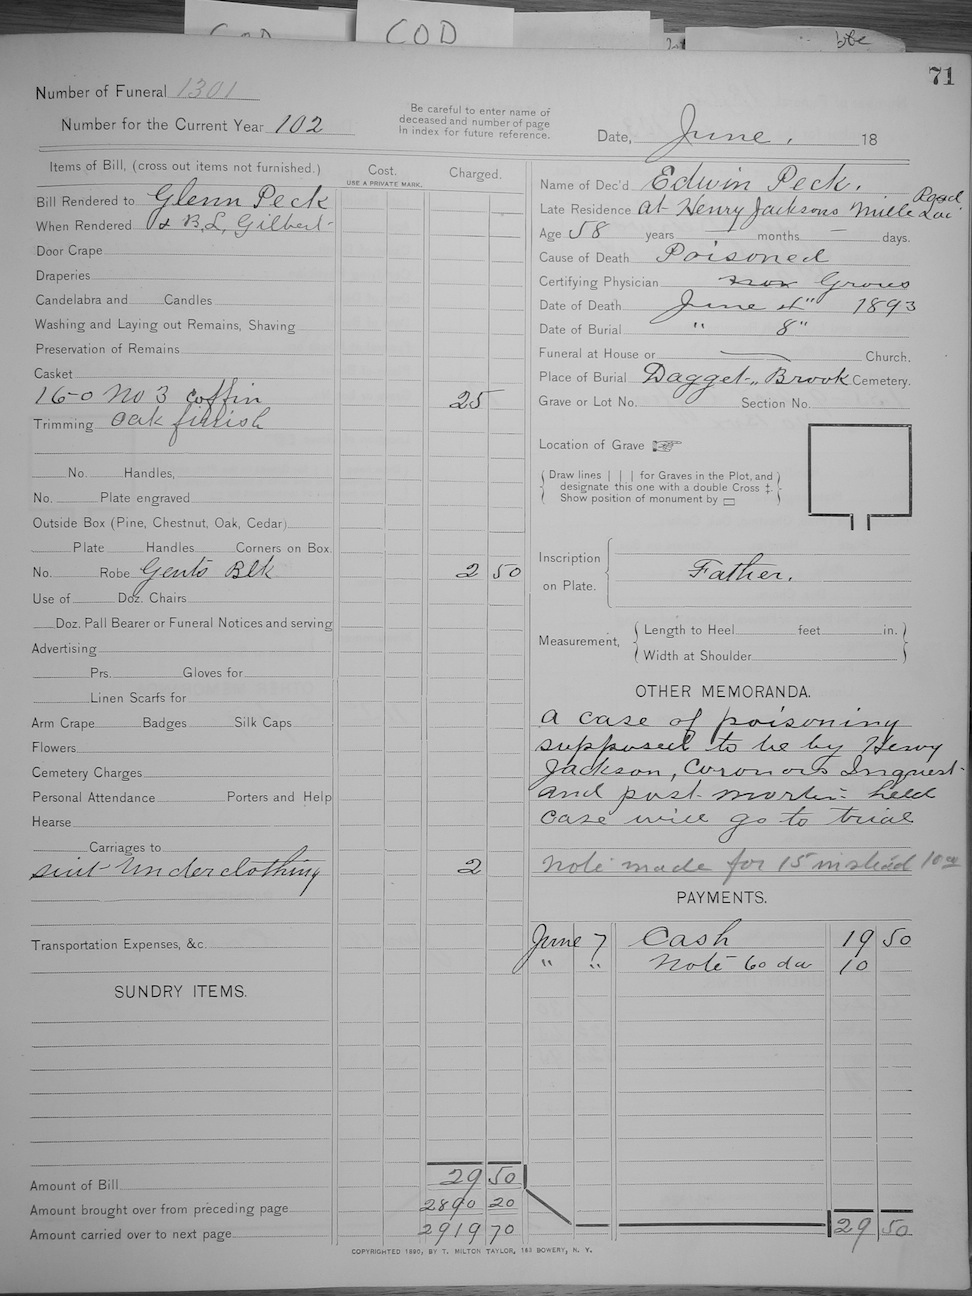 COD
COD
71
Number of Funeral 1301
Number for the Current Year 102
Be careful to enter name of
deceased and number of page
in index for future reference.
Date, June, 18
Items of Bill, (cross out items not furnished.)
Cost.
USE A PRIVATE MARK.
Charged.
Bill Rendered to Glenn Peck
When Rendered & B.L. Gilbert
Door Crape
Draperies
Candelabra and Candles
Washing and Laying out Remains, Shaving
Preservation of Remains
Casket
16-0 No 3 coffin 25
Trimming Oak finish
No. Handles,
No. Plate engraved
Outside Box (Pine, Chestnut, Oak, Cedar)
Plate Handles Corners on Box
No. Robe Gents Blk 2 50
Use of Doz. Chairs
Doz. Pall Bearer or Funeral Notices and serving
Advertising
Prs. Gloves for
Linen Scarfs for
Arm Crape Badges Silk Caps
Flowers
Cemetery Charges
Personal Attendance Porters and Help
Hearse
Carriages to
suit Underclothing 2
Transportation Expenses, &c.
SUNDRY ITEMS.
Amount of Bill 29 50
Amount brought over from preceding page 2890 20
Amount carried over to next page 2919 70
Name of Dec'd Edwin Peck.
Late Residence at Henry Jacksons Mille Lac Road
Age 58 years months — days.
Cause of Death Poisoned
Certifying Physician Groves
Date of Death June 1893
Date of Burial " 8"
Funeral at House or Church.
Place of Burial Dagget Brook Cemetery.
Grave or Lot No. Section No.
Location of Grave ☞
Draw lines | | | for Graves in the Plot, and
designate this one with a double Cross ‡.
Show position of monument by ▭
Inscription
on Plate.
Father.
Measurement,
Length to Heel feet in.
Width at Shoulder
OTHER MEMORANDA.
A case of poisoning
supposed to be by Henry
Jackson, Coronors Inquest
and post mortin held
case will go to trial
Note made for 15 instead 10 00
PAYMENTS.
June 7 Cash 19 50
" " Note 60 da 10
29 50
COPYRIGHTED 1890, BY T. MILTON TAYLOR, 163 BOWERY, N. Y.